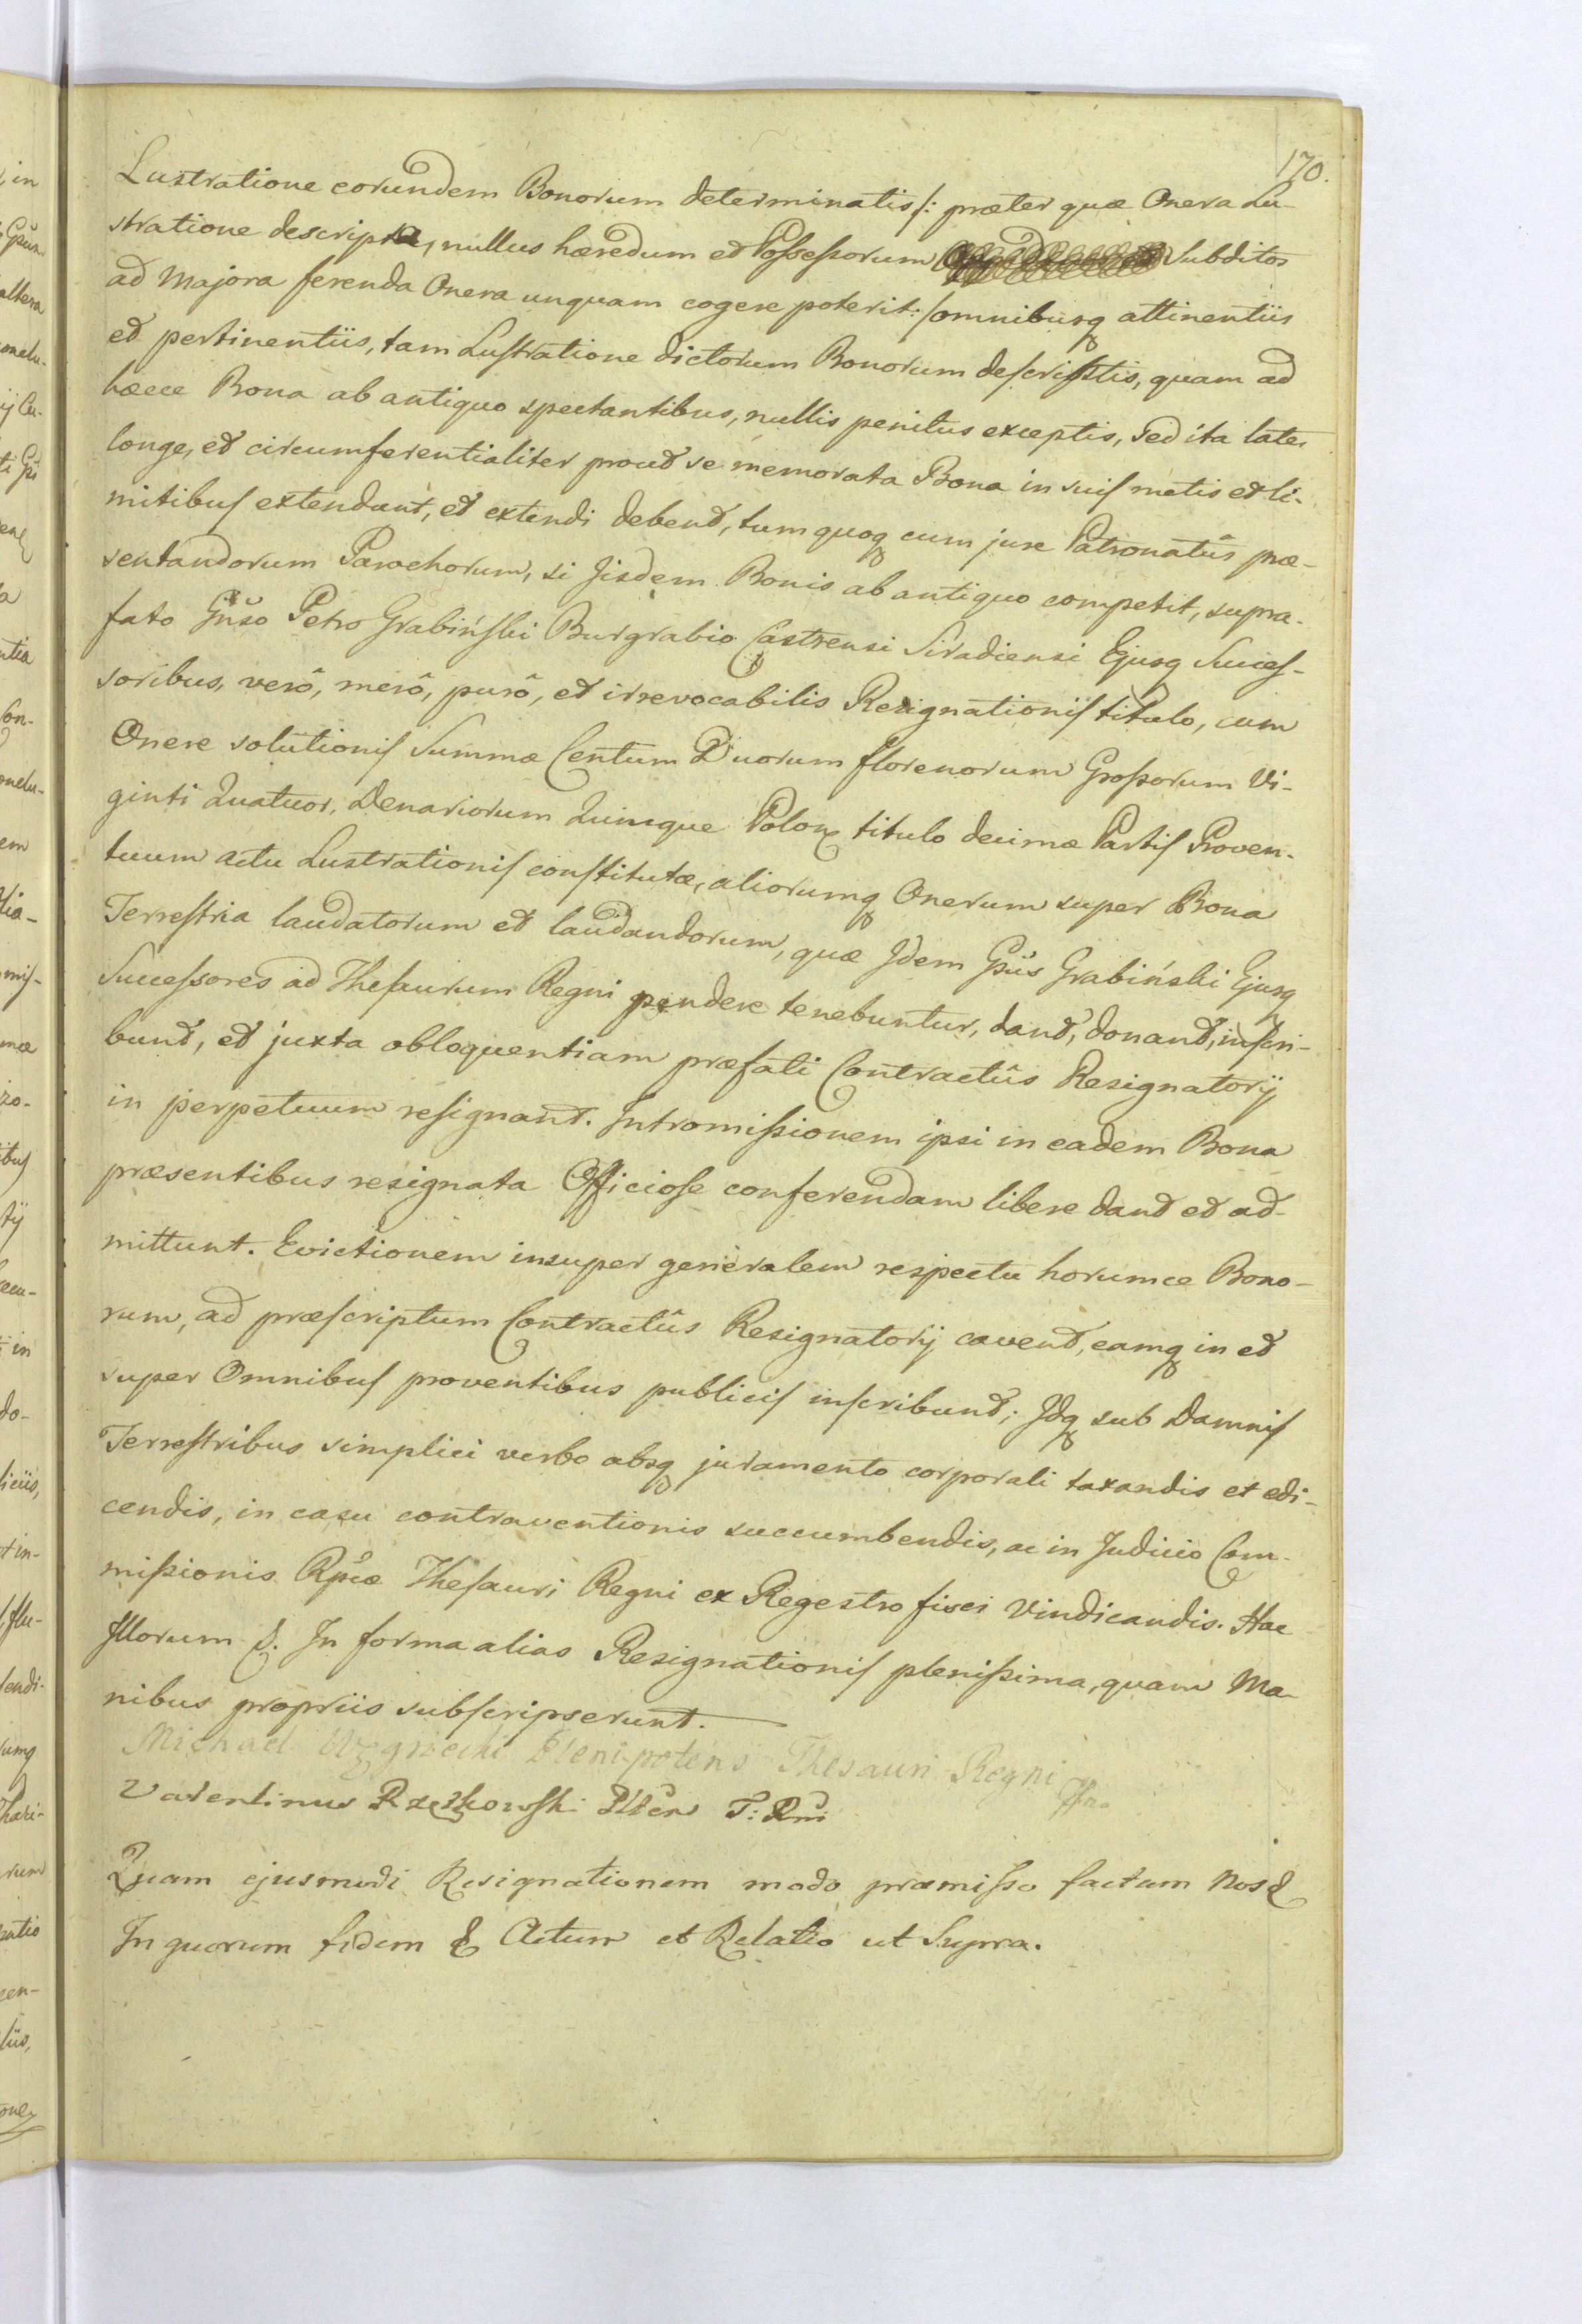 170.
Lustratione eorundem Bonorum determinatis/: præter quæ Onera Lu-
stratione descripta, nullus hæredum et Possessorum Subditos
ad Majora ferenda Onera unquam cogere poterit:/ omnibusq attinentiis
et pertinentiis, tam Lustratione dictorum Bonorum descriptis, quam ad
hæcce Bona ab antiquo spectantibus, nullis penitus exceptis, sed ita late,
longe, et circumferentialiter prout se memorata Bona in suis metis et li-
mitibus extendunt, et extendi debent, tum quoq cum jure Patronatûs præ-
sentandorum Parochorum, si Jisdem Bonis ab antiquo competit, supra-
fato Gñso Petro Grabiński Burgrabio Castrensi Siradiensi Ejusq Succes-
soribus, verô, merô, purô, et irrevocabilis Resignationis titulo, cum
Onere solutionis Summæ Centum Duorum florenorum Grossorum Vi-
ginti Quatuor, Denariorum Quinque Polon titulo decimæ Partis Proven-
tuum actu Lustrationis constitutæ, aliorumq Onerum super Bona
Terrestria laudatorum et laudandorum, quæ Jdem Gñs Grabiński Ejusq
Successores ad Thesaurum Regni pendere tenebuntur, dant, donant, inscri-
bunt, et juxta obloquentiam præfati Contractûs Resignatorij
in perpetuum resignant. Intromissionem ipsi in eadem Bona
præsentibus resignata Officiose conferendam libere dant et ad-
mittunt. Evictionem insuper generalem respectu horumce Bono-
rum, ad præscriptum Contractûs Resignatorij cavent, eamq in et
super Omnibus proventibus publicis inscribunt; Jdq sub Damnis
Terrestribus simplici verbo absq juramento corporali taxandis et edi-
cendis, in casu contraventionis succumbendis, ac in Judicio Com-
missionis Rpcæ Thesauri Regni ex Regestro fisci Vindicandis. Hac
Jllorum &. In forma alias Resignationis plenissima, quam Ma-
nibus propriis subscripserunt.
Michael Plenipotens Thesauri Regni
Valentinus Rzęzkowski T: Rni
Quam ejusmodi Resignationem modo præmisso factam Nos &
In quorum fidem & Actum et Relatio ut Supra.